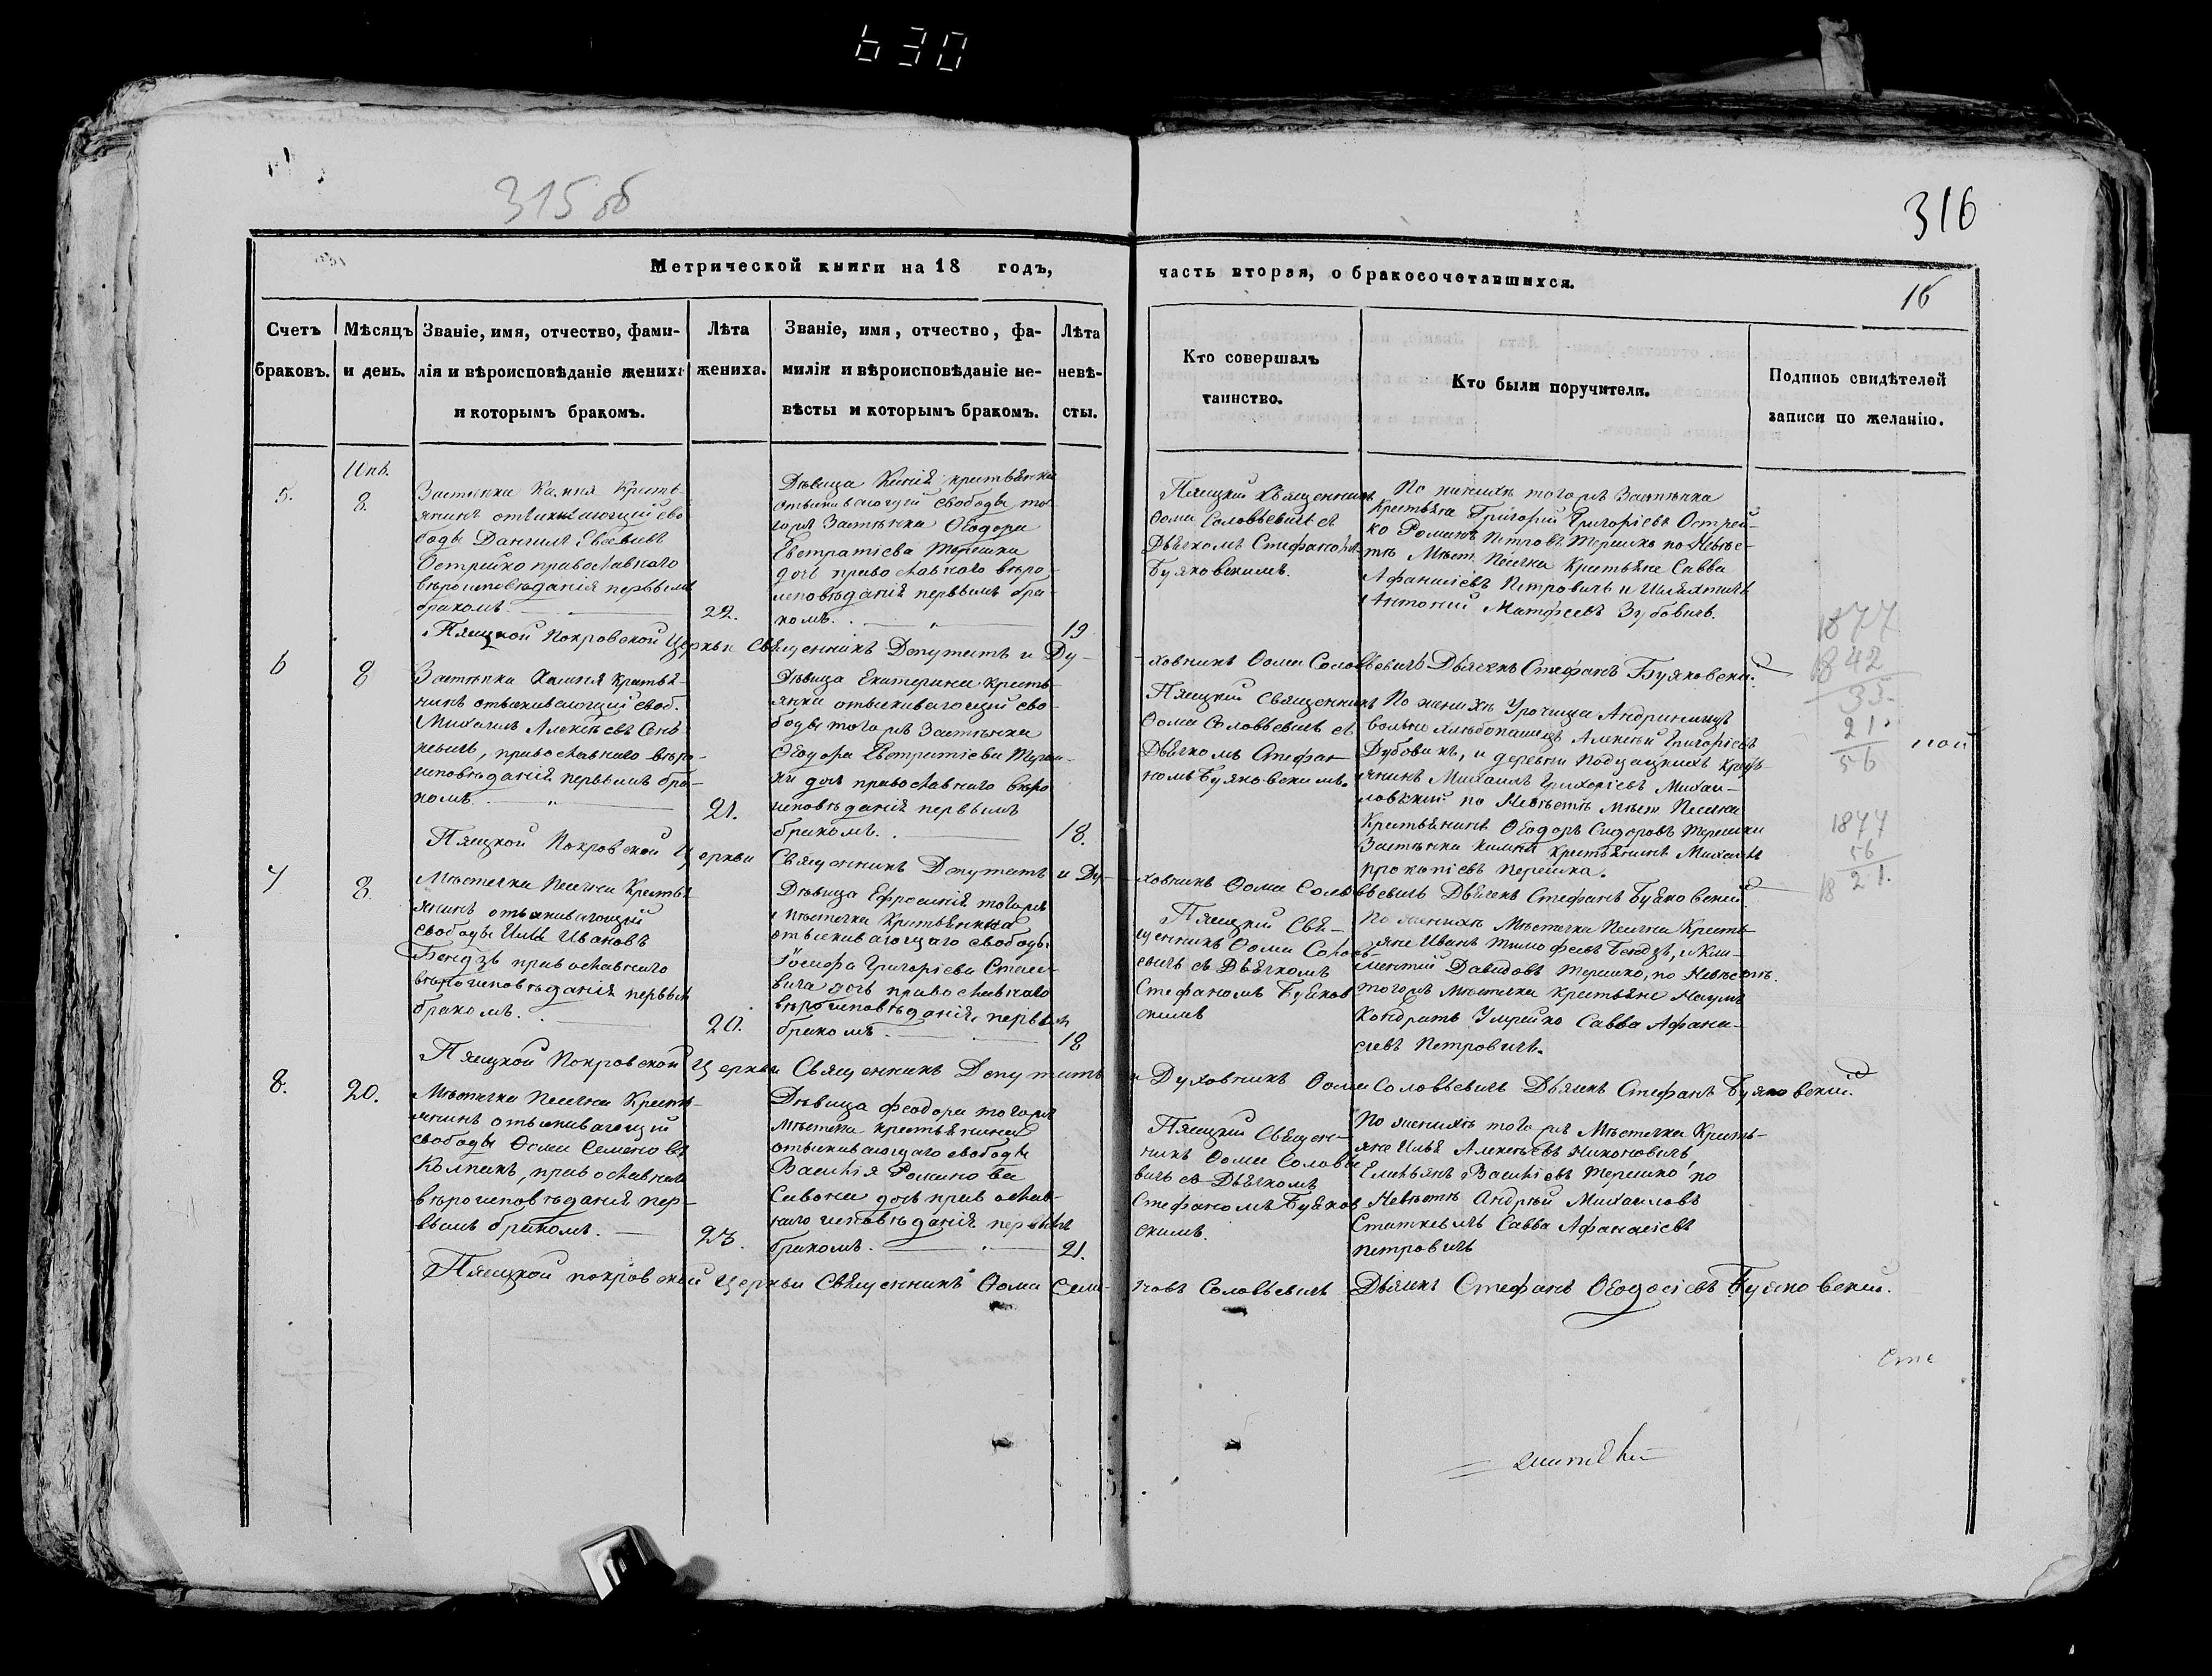 630
315 об
316
Метрической книги на 18 годъ,
часть вторая, о бракосочетавшихся.
16
Счетъ браковъ.
Мѣсяцъ и день.
Званіе, имя, отчество, фами-
лія и вѣроисповѣданіе жениха
и которымъ бракомъ.
Лѣта
жениха.
Званіе, имя, отчество, фа-
милія и вѣроисповѣданіе не-
вѣсты и которымъ бракомъ.
Лѣта
невѣ-
сты.
Кто совершалъ
таинство.
Кто были поручители.
Подпись свидѣтелей
записи по желанію.
5.
8.
Застѣнка Камня Кресть-
янинъ отыскивающій сво
боды Даніилъ
Острейко православнаго
вѣроисповѣданія первымъ
бракомъ.
22.
Дѣвица Ксенія крестьянки
отыскивающей свободы то
гожъ Застѣнка Ѳеодора
Евстратіева Терешки
дочь православнаго вѣро
исповѣданія первымъ бра
комъ.
19
Пясецкій Священникъ
Ѳома Соловьевичъ съ
Дьячкомъ Стефаномъ
Буяковскимъ.
По женихѣ тогожъ Застѣнка
Крестьяне Григорій Григоріевъ Острей-
ко Романъ Петровъ Терешко по Невѣс-
тѣ Мѣст. Песечна Крестьяне Савва
Афанасіевъ Петровичъ и Шляхтичъ
Антоній Матфеевъ Зубовичъ.
Пясецкой Покровской Церкви Священникъ Депутатъ и Ду-
ховникъ Ѳома Соловьевичъ Дьячекъ Стефанъ Буяковскій
6
8
Застѣнка Камня Крестья-
нинъ отыскивающій своб.
Михаилъ Алексѣевъ
православнаго вѣро-
исповѣданія первымъ бра-
комъ.
21.
Дѣвица Екатерина кресть-
янки отыскивающей сво-
боды тогожъ Застѣнка
Ѳеодора Евстратіева Тереш-
ки дочь православнаго вѣро
исповѣданія первымъ
бракомъ.
18.
Пясецкій Священникъ
Ѳома Соловьевичъ съ
Дьячкомъ Стефа-
номъ Буяковскимъ.
По женихѣ Урочища
вольно хлѣбопашецъ Алексѣй Григорьевъ
Дубовикъ, и деревни Крестья-
янинъ Михаилъ Григоріевъ Михай-
ловскій по Невѣстѣ Мѣст. Песечна
Крестьянинъ Ѳеодоръ Сидоровъ Терешки
Застѣнка Камня Крестьянинъ Михаилъ
Прокопіевъ Терешка.
Пясецкой Покровской Церкви Священникъ Депутатъ и Ду-
ховникъ Ѳома Соловьевичъ Дьячекъ Стефанъ Буяковскій
7
8.
Мѣстечка Песечна Кресть
янинъ отыскивающій
свободы Илья Ивановъ
Бендзь православнаго
вѣроисповѣданія первымъ
бракомъ.
20.
Дѣвица Ефросинія тогожъ
Мѣстечка Крестьянина
отыскивающаго свободы
Іосифа Григоріева
дочь православнаго
вѣроисповѣданія первымъ
бракомъ.
18
Пясецкій Свя-
щенникъ Ѳома Соловь
евичъ съ Дьячкомъ
Стефаномъ Буяков
скимъ
По женихѣ Мѣстечка Песечна Кресть-
яне Иванъ Тимофеевъ Бендзь, и Кли-
ментій Давидовъ Терешко, по Невѣстѣ
тогожъ Мѣстечка крестьяне Наумъ
Кондратъ Савва Афана-
сіевъ Петровичъ.
Пясецкой Покровской Церкви Священникъ Депутатъ и Духовникъ Ѳома Соловьевичъ Дьячекъ Стефанъ Буяковскій.
8.
20.
Мѣстечка Песечна Кресть-
янинъ отыскивающій
свободы Ѳома Семеновъ
Колпакъ, православнаго
вѣроисповѣданія пер-
вымъ бракомъ.
23.
Дѣвица Феодора тогожъ
Мѣстечка крестьянина
отыскивающаго свободы
Василія Романова
Савона дочь православ-
наго исповѣданія первымъ
бракомъ.
21.
Пясецкій Священ-
никъ Ѳома Соловье
вичъ съ Дьячкомъ
Стефаномъ Буяков
скимъ.
По женихѣ тогожъ Мѣстечка Кресть-
яне Илья Алексѣевъ Никоновичъ,
Емельянъ Васильевъ Терешко по
Невѣстѣ Андрей Михаиловъ
Статкевичъ Савва Афанасіевъ
Петровичъ
Пясецкой Покровской Церкви Священникъ Ѳома Семе-
новъ Соловьевичъ Дьячекъ Стефанъ Ѳеодосіевъ Буяковскій.
1877
1842
35
21
56
1877
56
18 21.